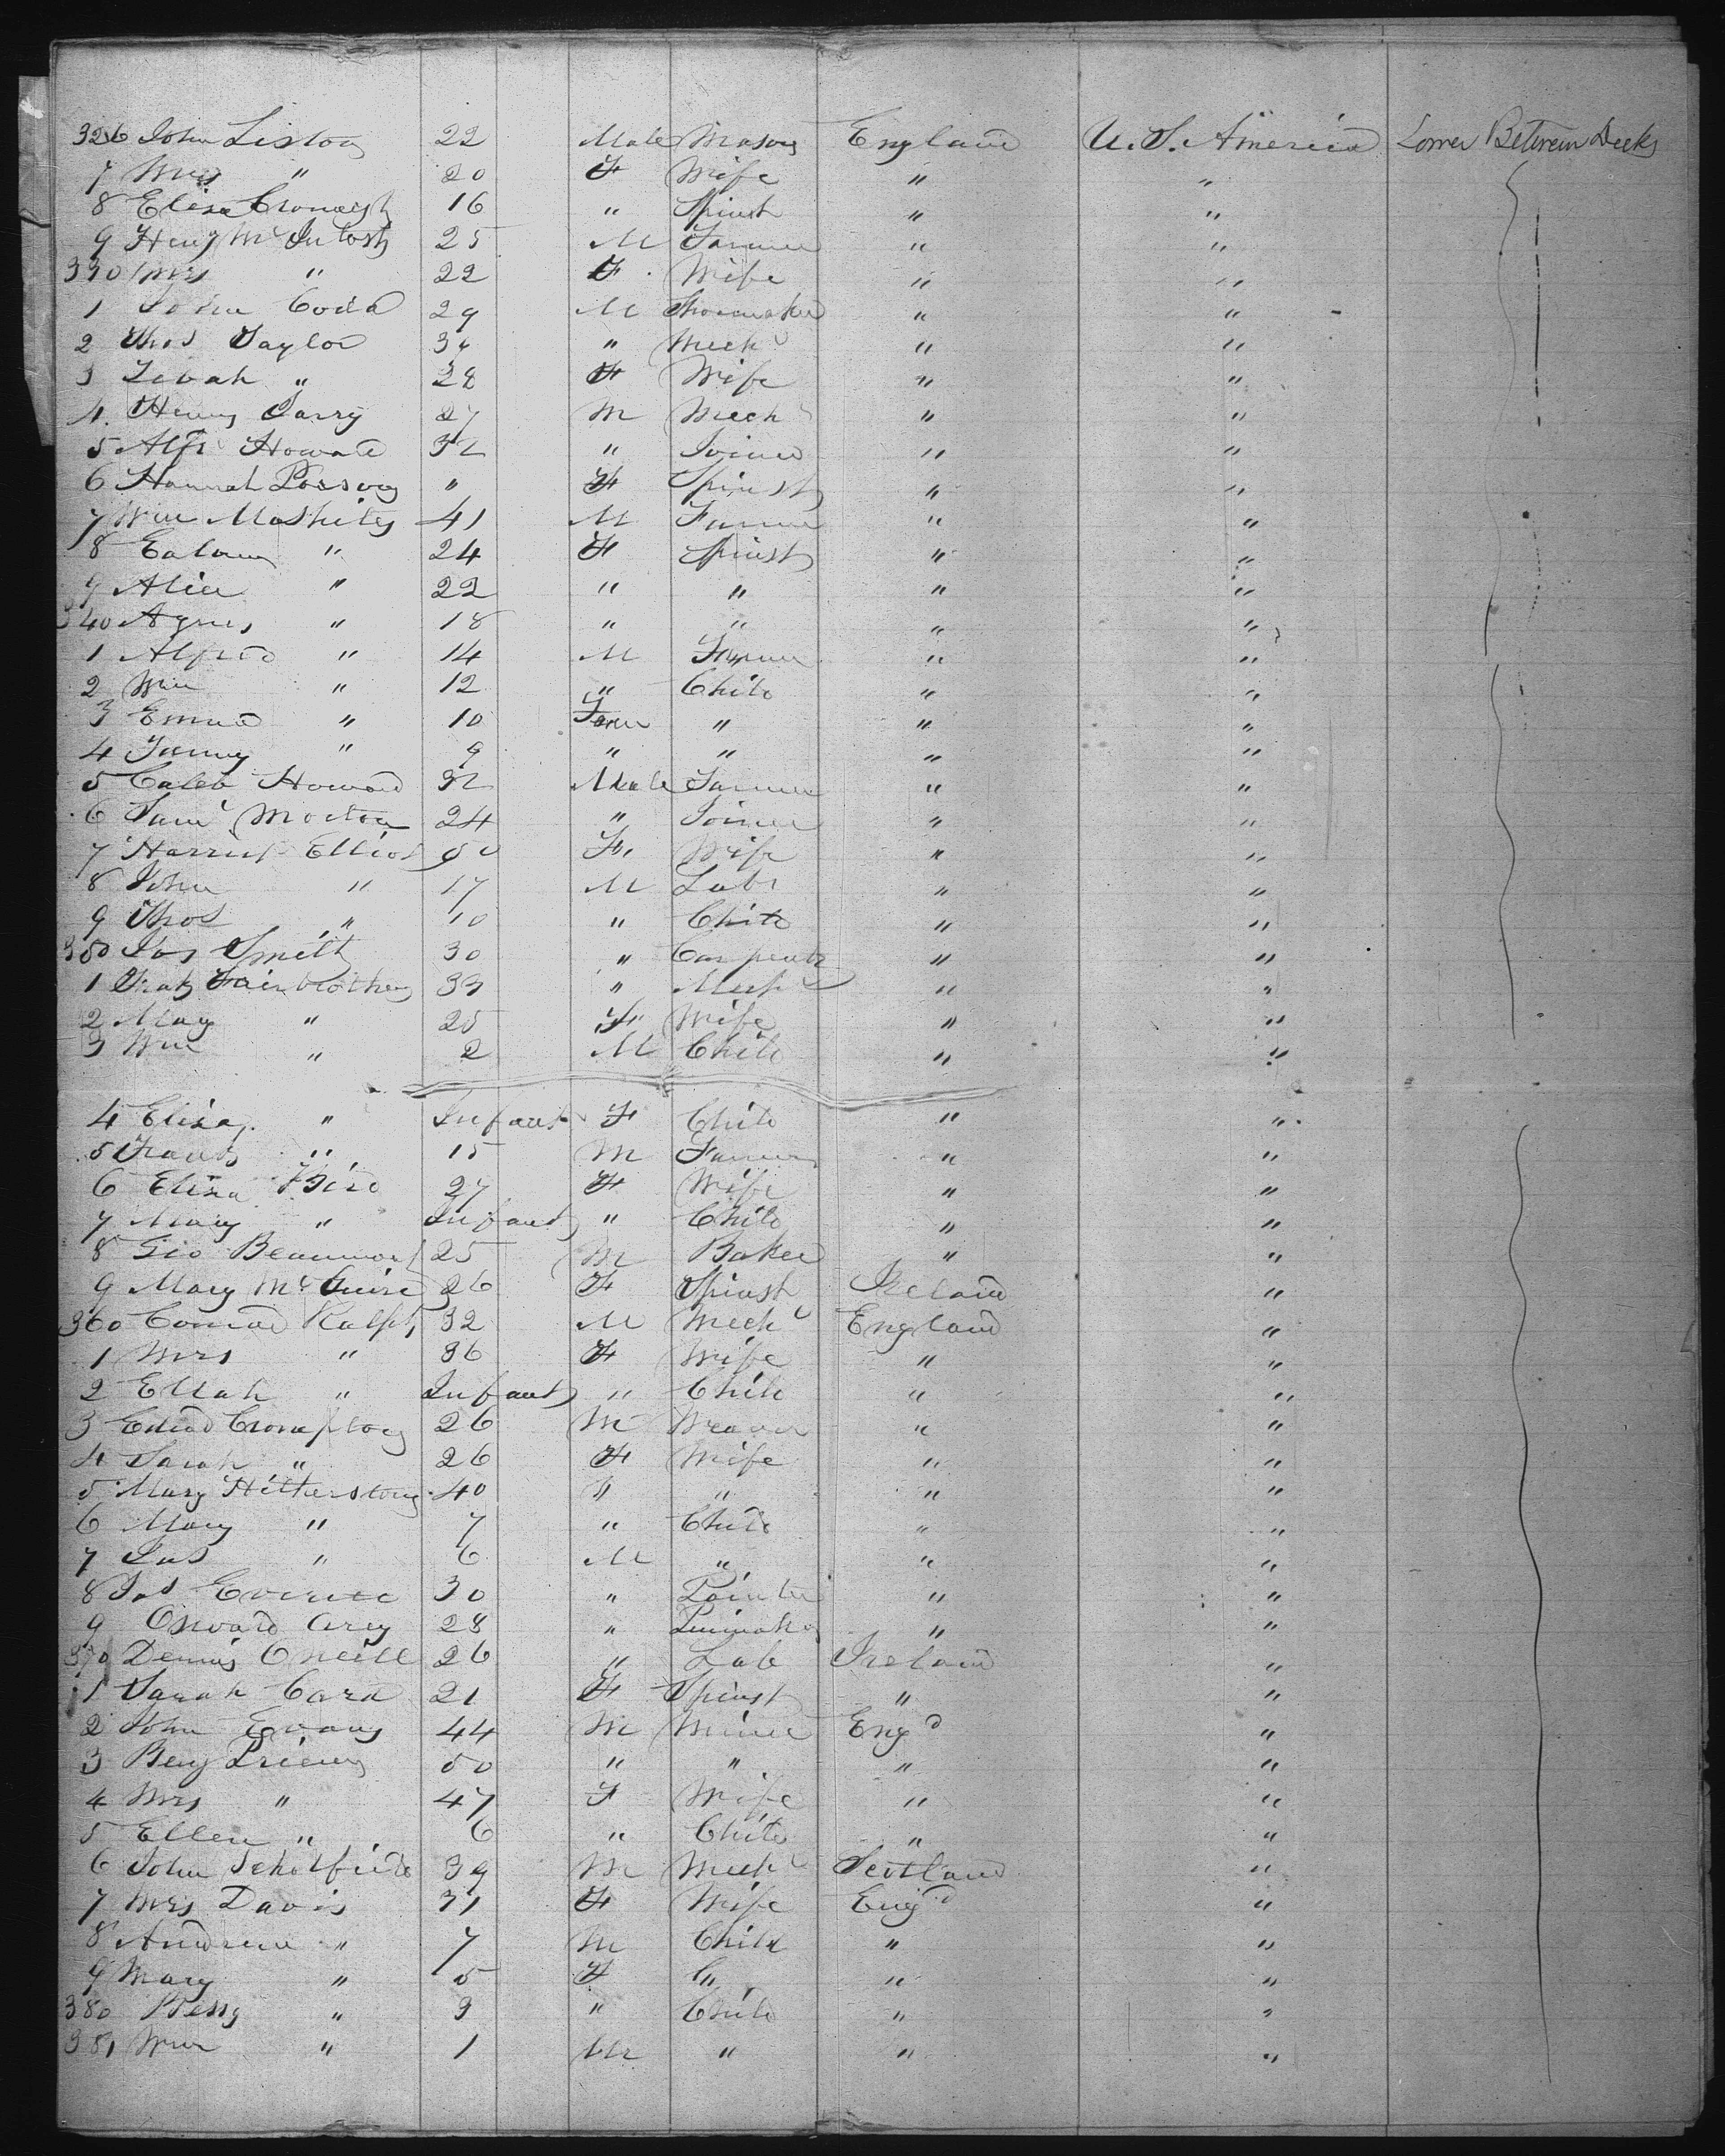 326 John Liston 22 Male Mason England U. S. America Lower Between Decks
7 Mrs " 20 F Wife " "
8 Eliza 16 " Spinst " "
9 Henry McIntosh 25 M Farmer " "
330 Mrs " 22 F. Wife " "
1 John 29 M Shoemaker " "
2 Thos Taylor 34 " Mech " "
3 " 28 F Wife " "
4 Henry 27 M Mech " "
5 Alfd Howard 32 " Joiner " "
6 Hannah " F Spinst " "
7 Wm 41 M Farmer " "
8 " 24 F Spinst " "
9 Alice " 22 " " " "
340 Agnes " 18 " " " "
1 Alfred " 14 M Farmer " "
2 Wm " 12 " Child " "
3 Emma " 10 Fem " " "
4 Fanny " 9 " " " "
5 Caleb Howard 32 Male Farmer " "
6 Saml Morton 24 " Joiner " "
7 Harriet Elliot 50 F. Wife " "
8 John " 17 M Labr " "
9 Thos " 10 " Child " "
350 Jas Smith 30 " Carpentr " "
1 Fairbrother 33 " Mech " "
2 Mary " 25 F Wife " "
3 Wm " 2 M Child " "
4 Eliza " Infant F Child " "
5 Francis " 15 M Farmer " "
6 Eliza Bird 27 F Wife " "
7 Mary " Infant " Child " "
8 Geo Beaumont 25 M Baker " "
9 Mary McGuire 26 F Spinst Ireland "
360 Conrad Ralph 32 M Mech England "
1 Mrs " 36 F Wife " "
2 Ellah " Infant " Child " "
3 Edwd Crompton 26 M Weaver " "
4 Sarah " 26 F Wife " "
5 Mary 40 " " " "
6 Mary " 7 " Child " "
7 Jas " 6 M " " "
8 Jos 30 " Painter " "
9 28 " " "
370 Dennis Oneill 26 " Lab Ireland "
1 Sarah 21 F Spinst " "
2 John Evans 44 M Miner Engd "
3 Benj 50 " " " "
4 Mrs " 47 F Wife " "
5 Ellen " 6 " Child " "
6 John Scholfield 39 M Mech Scotland "
7 Mrs Davis 31 F Wife Engd "
8 Andrew " 7 M Child " "
9 Mary " 5 F " " "
380 Bessy " 3 " Child " "
381 Wm " 1 M " " "